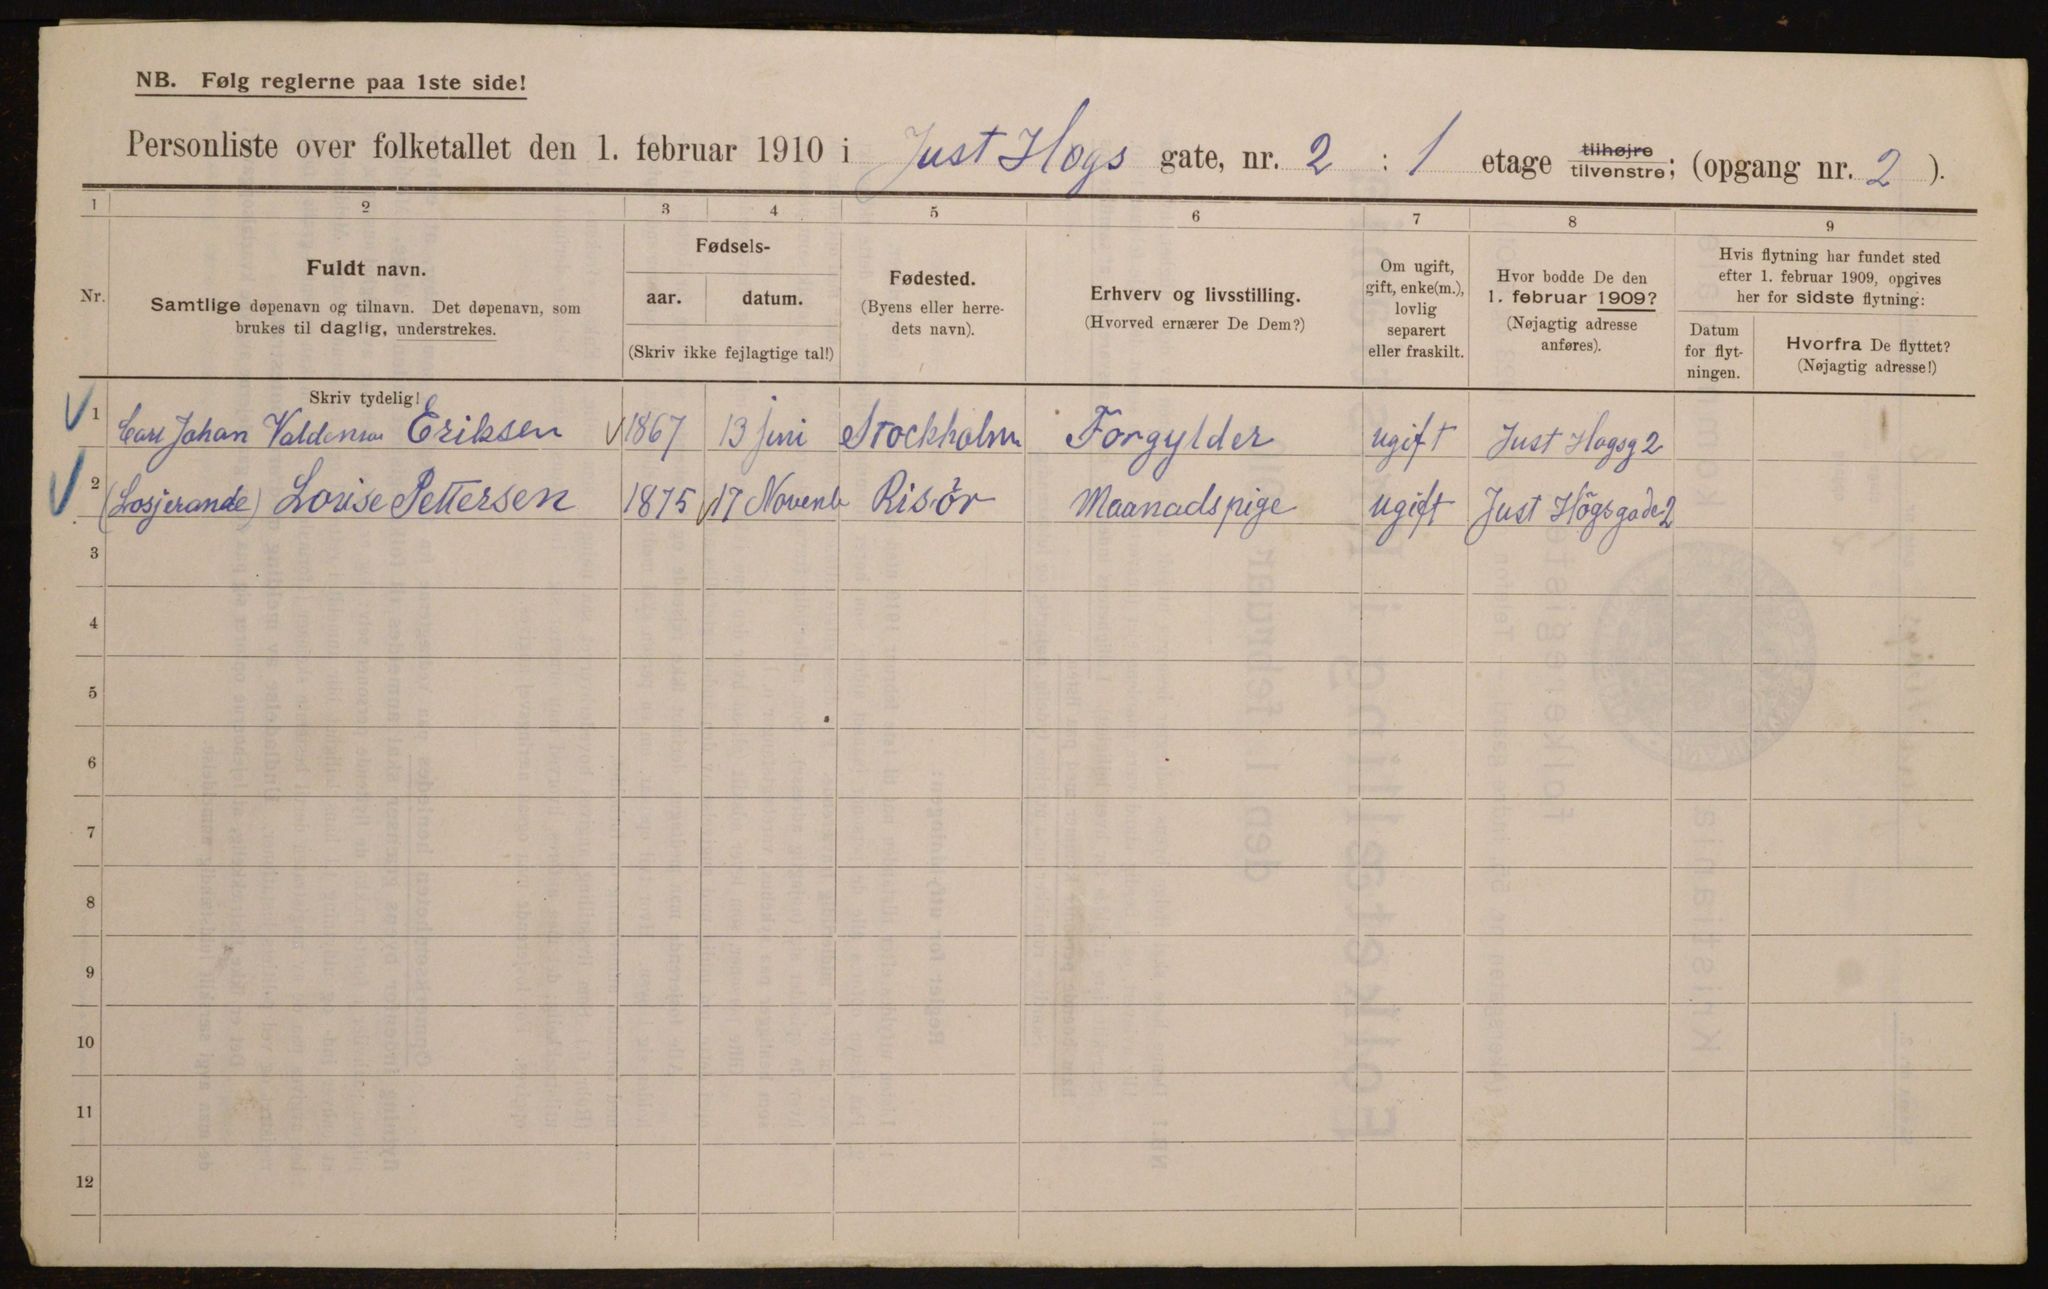 NB. Følg reglerne paa 1ste side!
Personliste over folketallet den 1. februar 1910 i Just Høgs gate, nr. 2 : 1 etage tilhøjre tilvenstre; (opgang nr. 2 ).
1 2 3 4 5 6 7 8 9
Nr.
Fuldt navn.
Samtlige døpenavn og tilnavn. Det døpenavn, som
brukes til daglig, understrekes.
Skriv tydelig!
Fødsels-
aar. datum.
(Skriv ikke fejlagtige tal!)
Fødested.
(Byens eller herre-
dets navn).
Erhverv og livsstilling.
(Hvorved ernærer De Dem?)
Om ugift,
gift, enke(m.),
lovlig
separert
eller fraskilt.
Hvor bodde De den
1. februar 1909?
(Nøjagtig adresse
anføres).
Hvis flytning har fundet sted
efter 1. februar 1909, opgives
her for sidste flytning:
Datum
for flyt-
ningen.
Hvorfra De flyttet?
(Nøjagtig adresse!)
1 Carl Johan Valdemar Eriksen 1867 13 juni Stockholm Forgylder ugift Just Høgsg 2
2 (Losjerande) Lovise Pettersen 1875 17 Novenb Risör Maanadspige ugift Just Högsgade 2
3
4
5
6
7
8
9
10
11
12